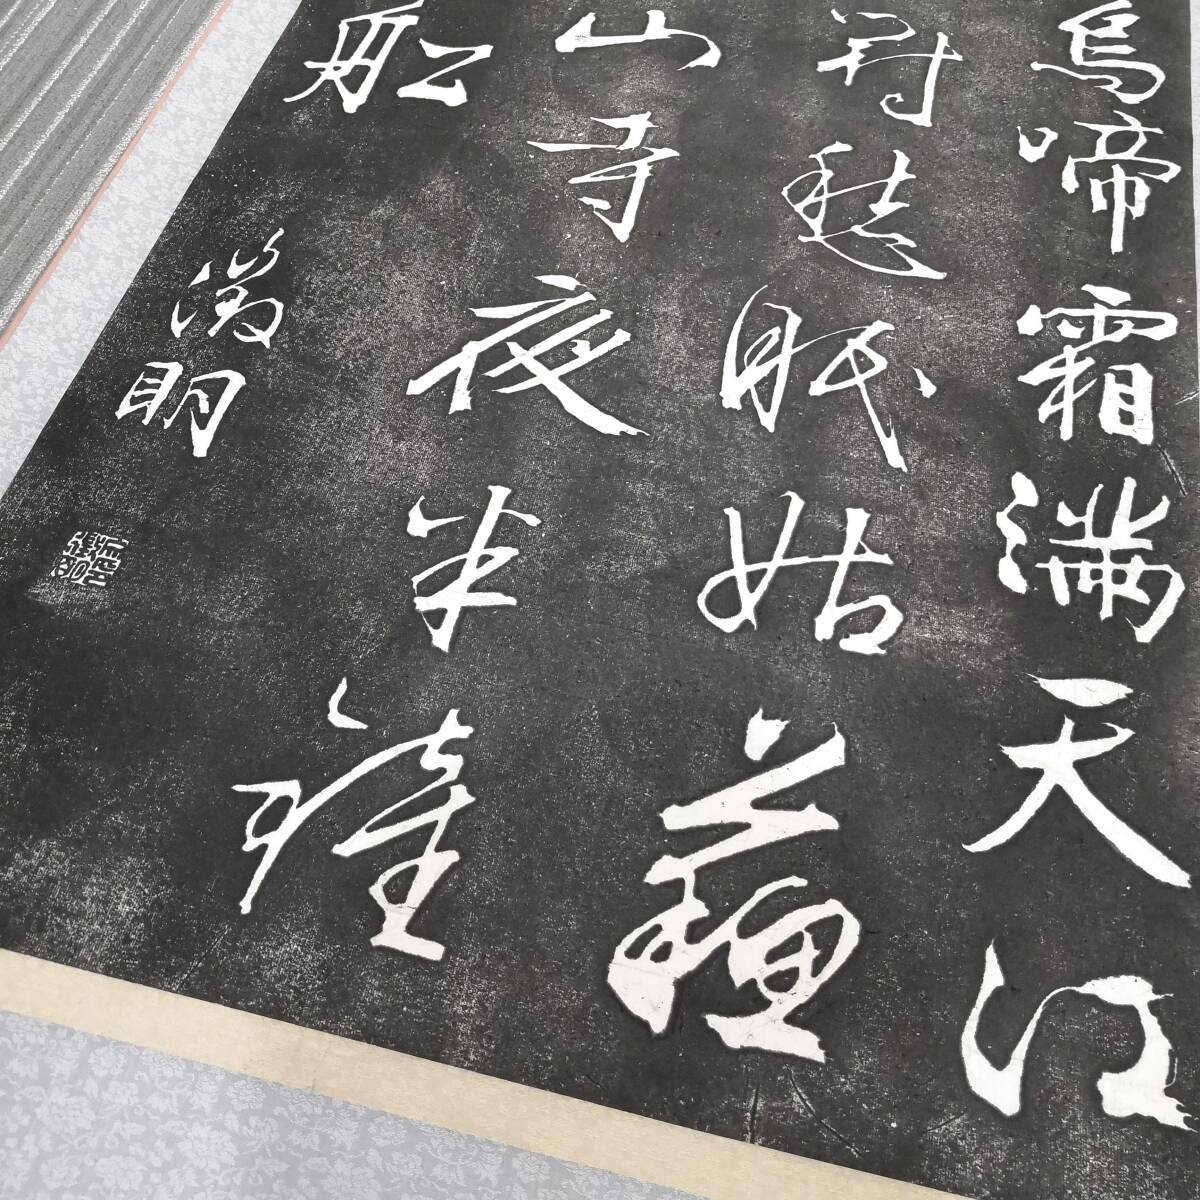 烏啼霜滿天江
對愁眠姑蘓
山寺夜半鐘
舩
徵明